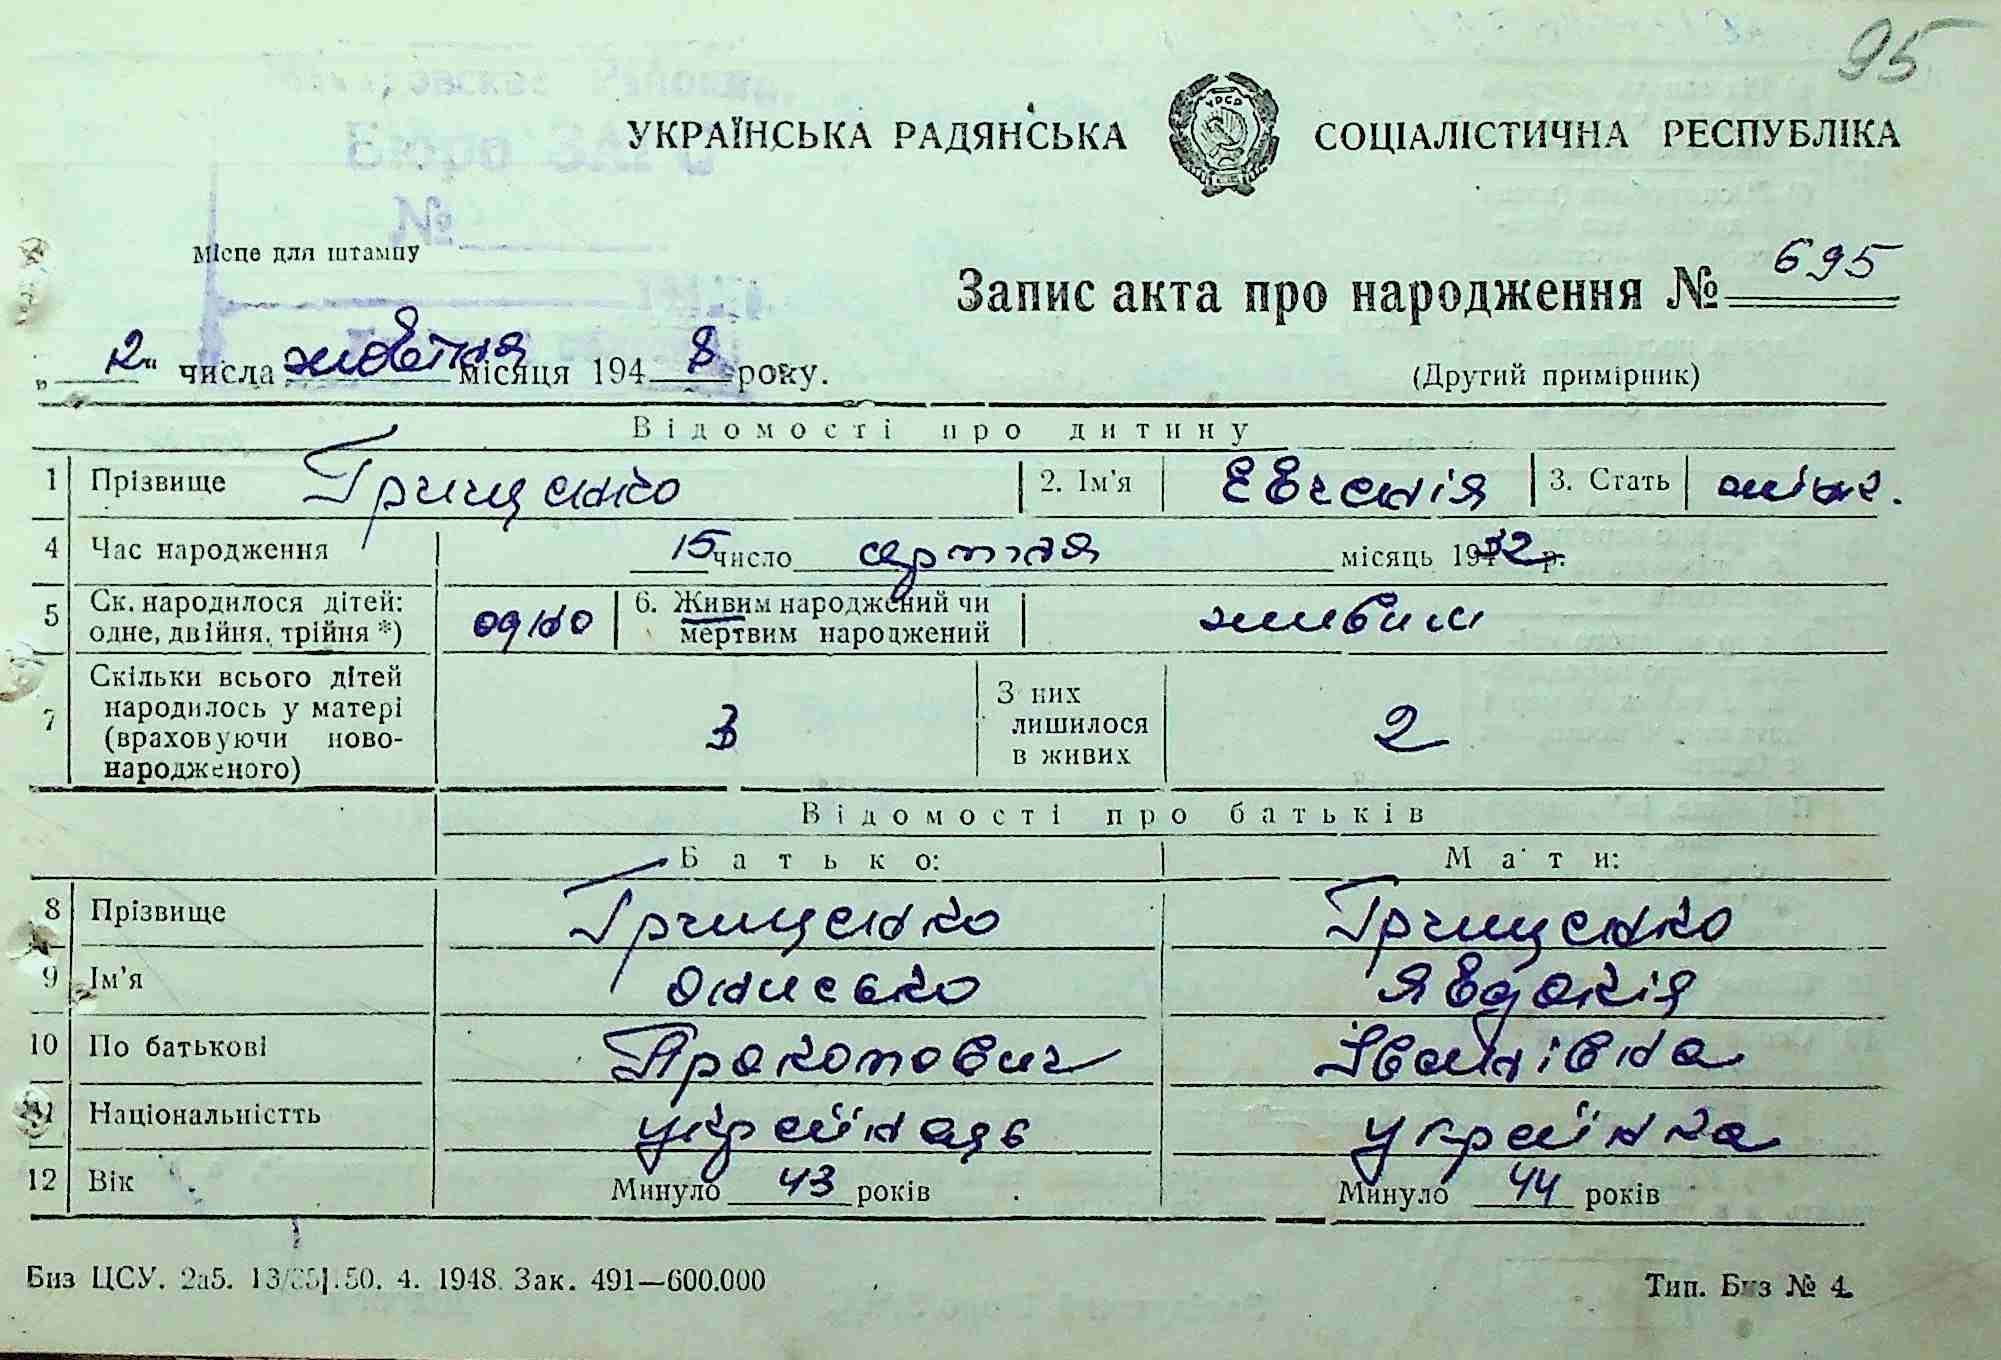 95
Бюро ЗАГС
№
УКРАЇНСЬКА РАДЯНСЬКА СОЦІАЛІСТИЧНА РЕСПУБЛІКА
УРСР
Місце для штампу
Запис акта про народження № 695
„2“ числа жовтня місяця 1948 року.
(Другий примірник)
Відомості про дитину
1 Прізвище Грищенко 2. Ім'я Евгенія 3. Стать жіноч.
4 Час народження 15 число серпня місяць 1932 р.
5 Ск. народилося дітей: одне, двійня, трійня *) одно 6. Живим народжений чи мертвим народжений живим
7 Скільки всього дітей народилось у матері (враховуючи ново-народженого) 3 З них лишилося в живих 2
Відомості про батьків
Батько: Мати:
8 Прізвище Грищенко Грищенко
9 Ім'я Онисько Явдокія
10 По батькові Прокопович Іванівна
11 Національністть українець українка
12 Вік Минуло 43 років Минуло 44 років
Биз ЦСУ. 2а5. 50. 4. 1948. Зак. 491—600.000
Тип. Биз № 4.